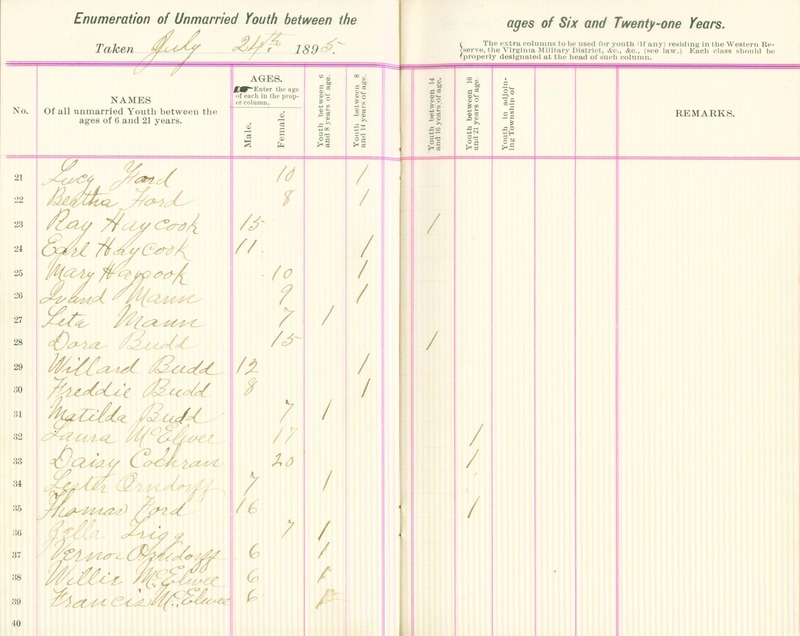 Enumeration of Unmarried Youth between the ages of Six and Twenty-one Years.
Taken July 24th. 1895.
The extra columns to be used for youth (if any) residing in the Western Re-
serve, the Virginia Military District, &c., &c., (see law.) Each class should be
properly designated at the head of such column.
No.
NAMES
Of all unmarried Youth between the
ages of 6 and 21 years.
AGES.
Enter the age
of each in the prop-
er column.
Male.
Female.
Youth between 6
and 8 years of age.
Youth between 8
and 14 years of age.
Youth between 14
and 16 years of age.
Youth between 16
and 21 years of age.
Youth in adjoin-
ing Township of
REMARKS.
21 Lucy Ford 10 /
22 Beatha Ford 8 /
23 Ray Haycook 15 /
24 Earl Haycook 11 /
25 Mary Haycook 10 /
26 Mann 9 /
27 Leta Mann 7 /
28 Dora Budd 15 /
29 Willard Budd 12 /
30 Freddie Budd 8 /
31 Matilda Budd 7 /
32 Laura McElwee 17 /
33 Daisy Cochran 20 /
34 Lester Orndorff 7 /
35 Thomas Ford 16 /
36 Zella Trigg 7 /
37 Vernor Orndorff 6 /
38 Willie McElwee 6 /
39 Francis McElwee 6 /
40